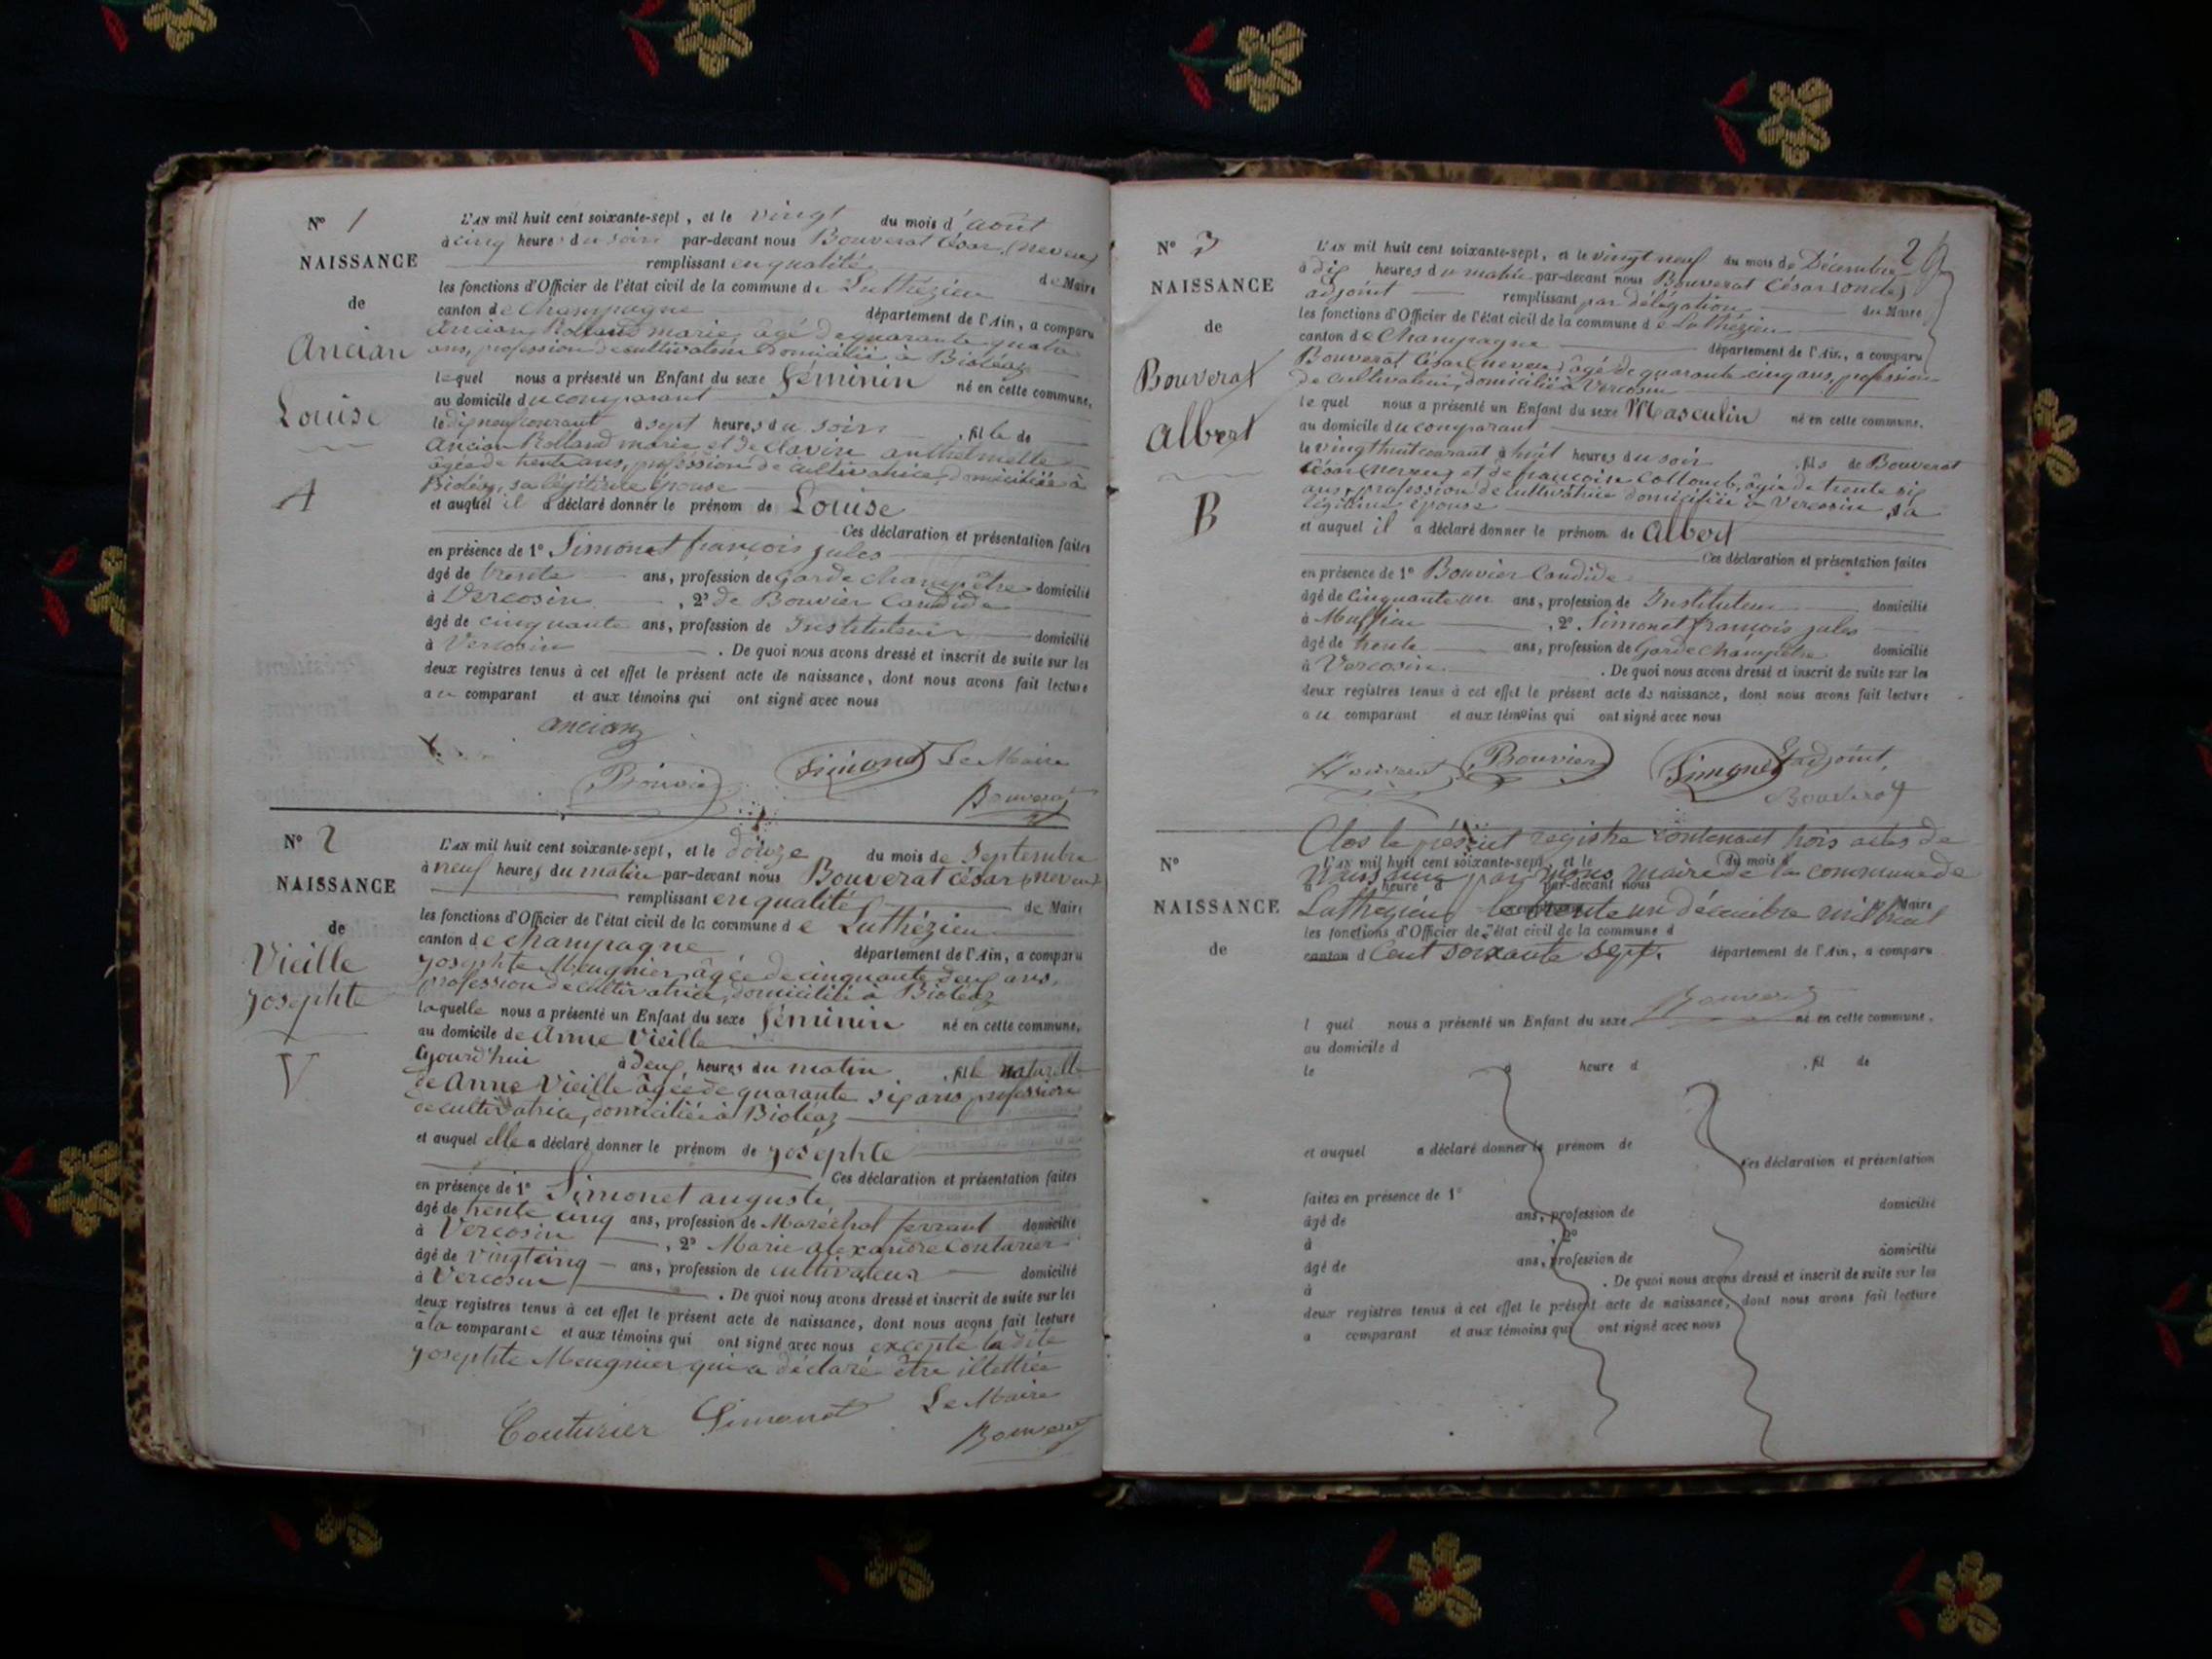 N° 1
NAISSANCE
de
Ancian
Louise
A
L'AN mil huit cent soixante-sept, et le vingt du mois d'août
à cinq heures du soir par-devant nous Bouverat César (neveu)
remplissant en qualité de Maire
les fonctions d'Officier de l'état civil de la commune de Luthézieu
canton de Champagne département de l'Ain, a comparu
Ancian Rolland marie, âgé de quarante quatre
ans, profession de cultivateur domicilié à Bioléaz
lequel nous a présenté un Enfant du sexe féminin né en cette commune,
au domicile du comparant
le dix neuf courant à sept heures du soir, fille de
Ancian Rolland marie et de Clavin anthelmette
âgée de trente ans, profession de cultivatrice, domiciliée à
Bioléaz, sa légitime épouse
et auquel il a déclaré donner le prénom de Louise
Ces déclaration et présentation faites
en présence de 1° Simonet françois jules
âgé de trente ans, profession de garde champêtre domicilié
à Vercosin, 2° de Bouvier Candide
âgé de cinquante ans, profession de Instituteur domicilié
à Vercosin. De quoi nous avons dressé et inscrit de suite sur les
deux registres tenus à cet effet le présent acte de naissance, dont nous avons fait lecture
au comparant et aux témoins qui ont signé avec nous
ancian
Bouvier Simonet Le Maire
Bouverat
N° 2
NAISSANCE
de
Vieille
Josephte
V
L'AN mil huit cent soixante-sept, et le douze du mois de Septembre
à neuf heures du matin par-devant nous Bouverat César (neveu)
remplissant en qualité de Maire
les fonctions d'Officier de l'état civil de la commune de Luthézieu
canton de champagne département de l'Ain, a comparu
Josephte Meugnier, âgée de cinquante deux ans,
profession de cultivatrice, domiciliée à Bioléaz
laquelle nous a présenté un Enfant du sexe féminin né en cette commune,
au domicile de Anne Vieille
à deux heures du matin, fille naturelle
de Anne Vieille âgée de quarante six ans profession
de cultivatrice, domiciliée à Bioléaz
et auquel elle a déclaré donner le prénom de Josephte
Ces déclaration et présentation faites
en présence de 1° Simonet auguste
âgé de trente cinq ans, profession de Maréchal ferrant domicilié
à Vercosin, 2° Marie alexandre Couturier
âgé de vingt cinq ans, profession de cultivateur domicilié
à Vercosin. De quoi nous avons dressé et inscrit de suite sur les
deux registres tenus à cet effet le présent acte de naissance, dont nous avons fait lecture
à la comparante et aux témoins qui ont signé avec nous excepté la dite
Josephte Meugnier qui a déclaré être illettrée
Couturier Simonet Le Maire
Bouverat
N° 3
NAISSANCE
de
Bouverat
Albert
B
2
L'AN mil huit cent soixante-sept, et le vingt neuf du mois de Décembre
à dix heures du matin par-devant nous Bouverat César (oncle)
adjoint remplissant par délégation du Maire
les fonctions d'Officier de l'état civil de la commune de Luthézieu
canton de Champagne département de l'Ain, a comparu
Bouverat César (neveu) âgé de quarante cinq ans, profession
de cultivateur, domicilié à Vercosin
le quel nous a présenté un Enfant du sexe Masculin né en cette commune,
au domicile du comparant
le vingt huit courant à huit heures du soir, fils de Bouverat
César (neveu) et de françoise Collomb, âgée de trente six
ans, profession de cultivatrice domiciliée à Vercosin, sa
légitime épouse
et auquel il a déclaré donner le prénom de Albert
Ces déclaration et présentation faites
en présence de 1° Bouvier Candide
âgé de cinquante un ans, profession de Instituteur domicilié
à, 2° Simonet françois jules
âgé de trente ans, profession de Garde champêtre domicilié
à Vercosin. De quoi nous avons dressé et inscrit de suite sur les
deux registres tenus à cet effet le présent acte de naissance, dont nous avons fait lecture
au comparant et aux témoins qui ont signé avec nous
Bouverat Bouvier Simonet L'adjoint,
Bouverat
Clos le présent registre contenant trois actes de
N°
L'AN mil huit cent soixante-sept, et le du mois d
naissance par nous, maire de la commune de
à heure d par-devant nous
NAISSANCE
Luthézieu le trente un décembre mil huit
Maire
les fonctions d'Officier de l'état civil de la commune d
de
canton d cent soixante sept. département de l'Ain, a comparu
Bouverat
l quel nous a présenté un Enfant du sexe né en cette commune,
au domicile d
le à heure d, fil de
et auquel a déclaré donner le prénom de
Ces déclaration et présentation
faites en présence de 1°
âgé de ans, profession de domicilié
à, 2°
âgé de ans, profession de domicilié
à. De quoi nous avons dressé et inscrit de suite sur les
deux registres tenus à cet effet le présent acte de naissance, dont nous avons fait lecture
a comparant et aux témoins qui ont signé avec nous